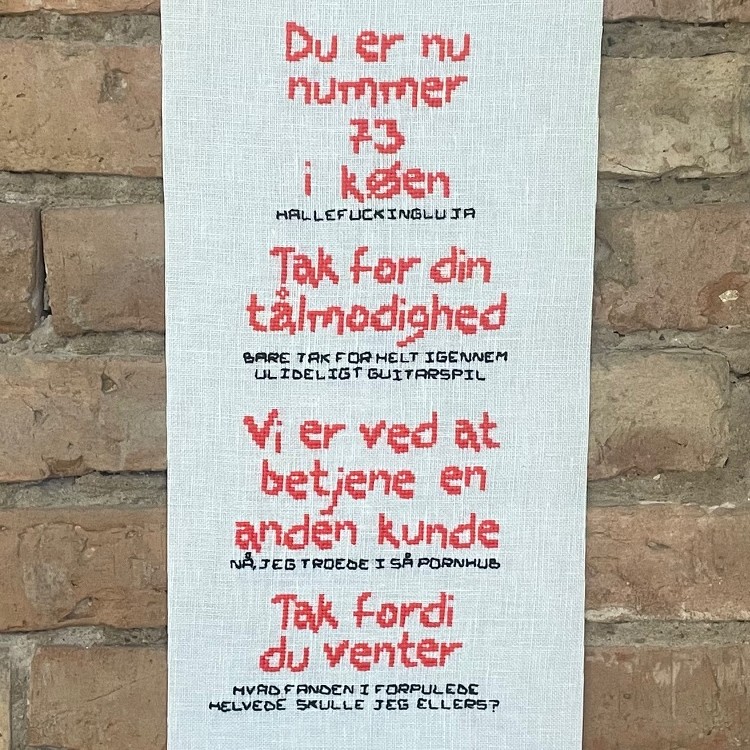 Du er nu
nummer
73
i køen
HALLEFUCKINGLUJA
Tak for din
tålmodighed
BARE TAK FOR HELT IGENNEM
ULIDELIGT GUITARSPIL
Vi er ved at
betjene en
anden kunde
NÅ, JEG TROEDE I SÅ PORNHUB
Tak fordi
du venter
HVAD FANDEN I FORPULEDE
HELVEDE SKULLE JEG ELLERS?